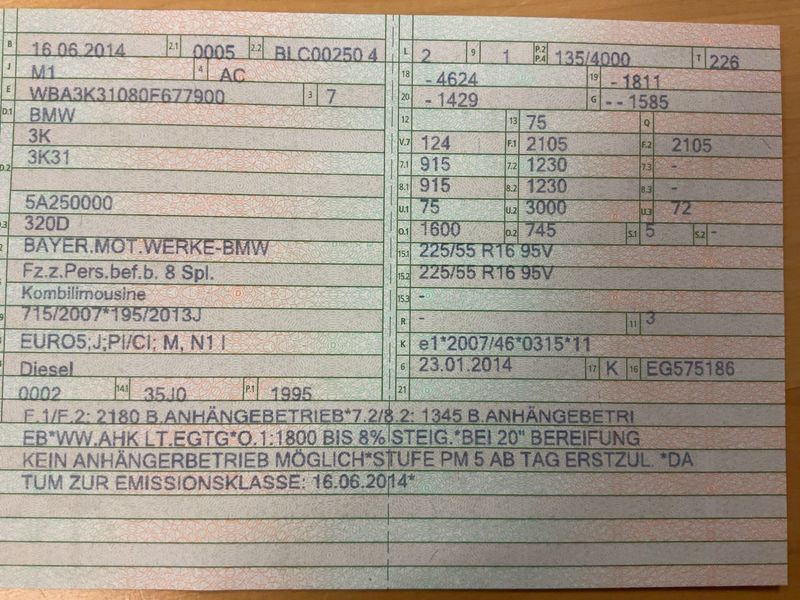 B 16.06.2014 2.1 0005 2.2 BLC00250 4
J M1 4 AC
E WBA3K31080F677900 3 7
D.1 BMW
3K
D.2 3K31
5A250000
D.3 320D
2 BAYER.MOT.WERKE-BMW
Fz.z.Pers.bef.b. 8 Spl.
Kombilimousine
9 715/2007*195/2013J
EURO5;J;PI/CI; M, N1 I
Diesel
0002 14.1 35J0 P.1 1995
L 2 9 1 P.2 P.4 135/4000 T 226
18 - 4624 19 - 1811
20 - 1429 G - - 1585
12 13 75 Q
V.7 124 F.1 2105 F.2 2105
7.1 915 7.2 1230 7.3 -
8.1 915 8.2 1230 8.3 -
U.1 75 U.2 3000 U.3 72
O.1 1600 O.2 745 S.1 5 S.2 -
15.1 225/55 R16 95V
15.2 225/55 R16 95V
15.3 -
R - 11 3
K e1*2007/46*0315*11
6 23.01.2014 17 K 16 EG575186
21
F.1/F.2: 2180 B.ANHÄNGEBETRIEB*7.2/8.2: 1345 B.ANHÄNGEBETRI
EB*WW.AHK LT.EGTG*O.1:1800 BIS 8% STEIG.*BEI 20" BEREIFUNG
KEIN ANHÄNGERBETRIEB MÖGLICH*STUFE PM 5 AB TAG ERSTZUL. *DA
TUM ZUR EMISSIONSKLASSE: 16.06.2014*